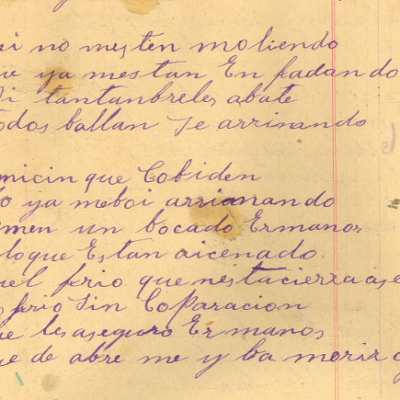 si no mesten moliendo
ue ya mestan Enfadando
Si tantanbreles abate
odos ballan se arrinando

micin que Cobiden
o ya meboi arrinando
men un bocado Ermanos
loque Estan aicenado
el frio que nestacierra ase
frio Sin Coparacion
ue les aseguro Ermanos
ue de abre me y ba morir